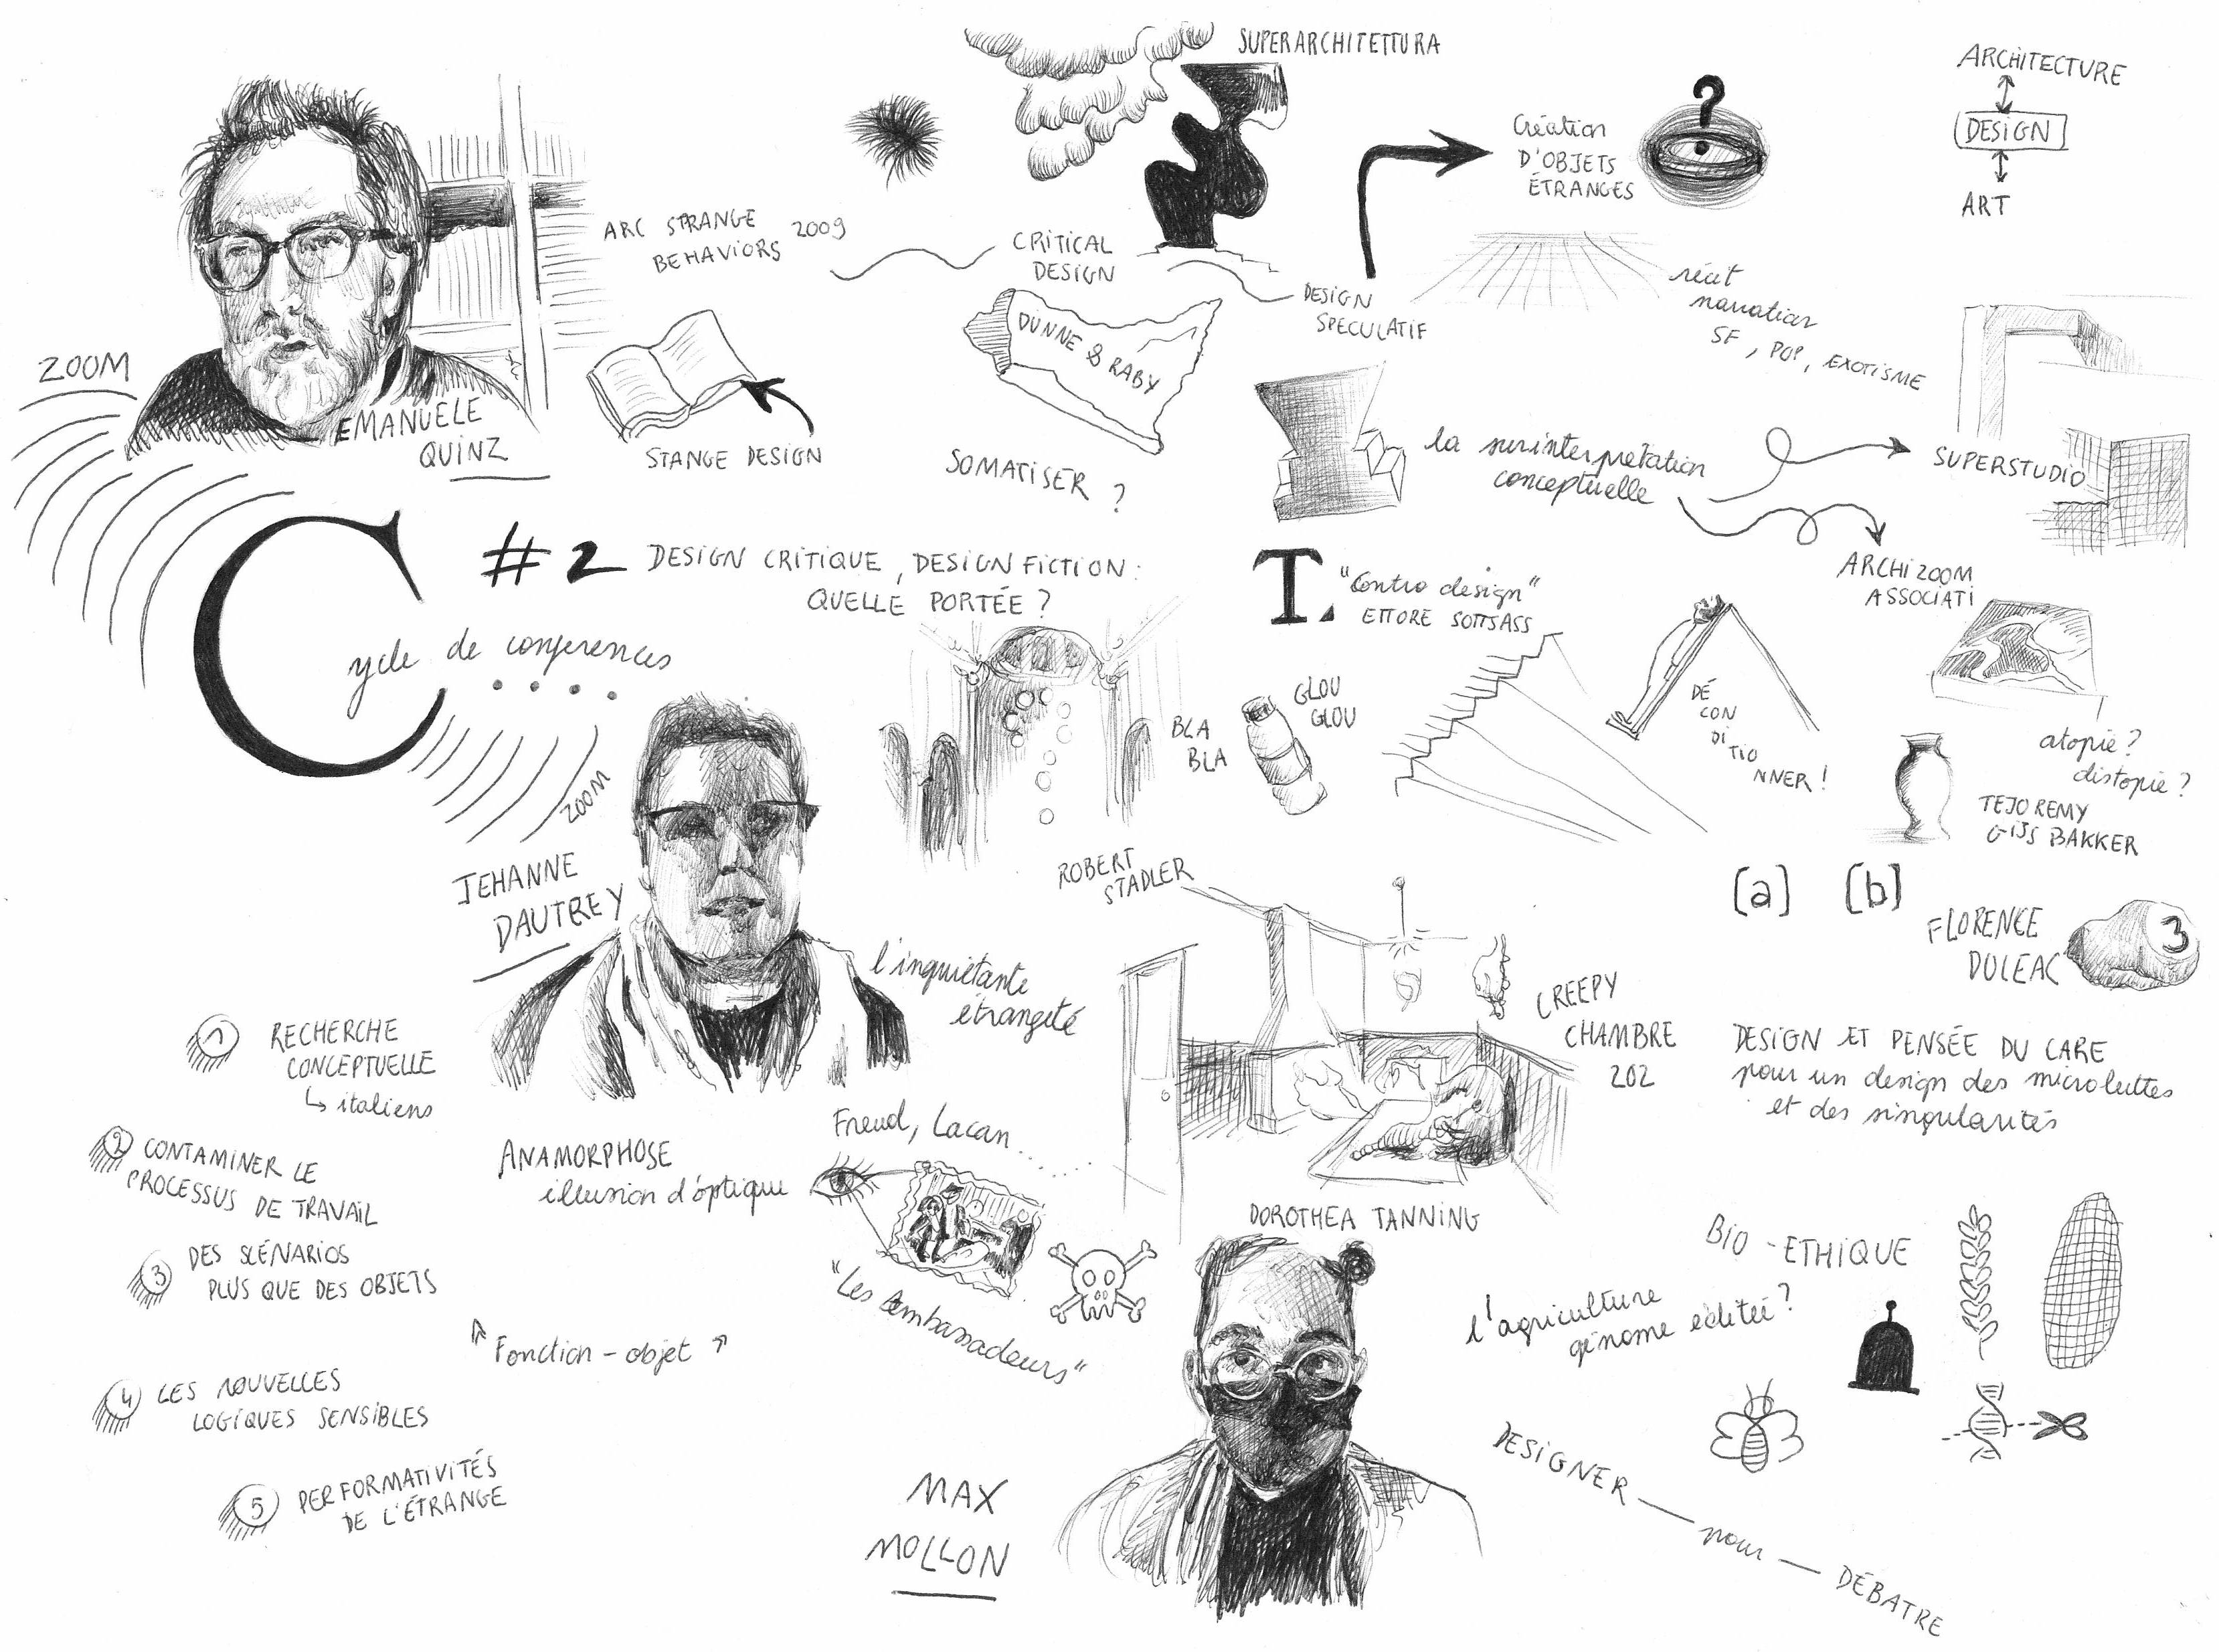 ZOOM
EMANUELE
QUINZ
ARC STRANGE
BEHAVIORS 2009
STANGE DESIGN
SUPERARCHITETTURA
CRITICAL
DESIGN
DUNNE & RABY
SOMATISER ?
DESIGN
SPECULATIF
Création
D'OBJETS
ÉTRANGES
?
ARCHITECTURE
DESIGN
ART
récit
narration
SF, POP, EXOTISME
la surinterprétation
conceptuelle
SUPERSTUDIO
ARCHIZOOM
ASSOCIATI
Cycle de conférences
#2 DESIGN CRITIQUE, DESIGN FICTION:
QUELLE PORTÉE ?
T.
"Contro design"
ETTORE SOTTSASS
BLA
BLA
GLOU
GLOU
DÉ
CON
DI
TIO
NNER !
atopie ?
distopie ?
TEJO REMY
GIJS BAKKER
ZOOM
JEHANNE
DAUTREY
ROBERT
STADLER
[a] [b]
FLORENCE
DOLEAC
3
l'inquiétante
étrangeté
CREEPY
CHAMBRE
202
DESIGN ET PENSÉE DU CARE
pour un design des microluttes
et des singularités
1 RECHERCHE
CONCEPTUELLE
↳ italiens
2 CONTAMINER LE
PROCESSUS DE TRAVAIL
3 DES SCÉNARIOS
PLUS QUE DES OBJETS
4 LES NOUVELLES
LOGIQUES SENSIBLES
5 PERFORMATIVITÉS
DE L'ÉTRANGE
ANAMORPHOSE
illusion d'optique
Freud, Lacan......
"Les Ambassadeurs"
Fonction - objet
DOROTHEA TANNING
BIO - ETHIQUE
l'agriculture
génome éditée ?
MAX
MOLLON
DESIGNER — pour — DÉBATRE